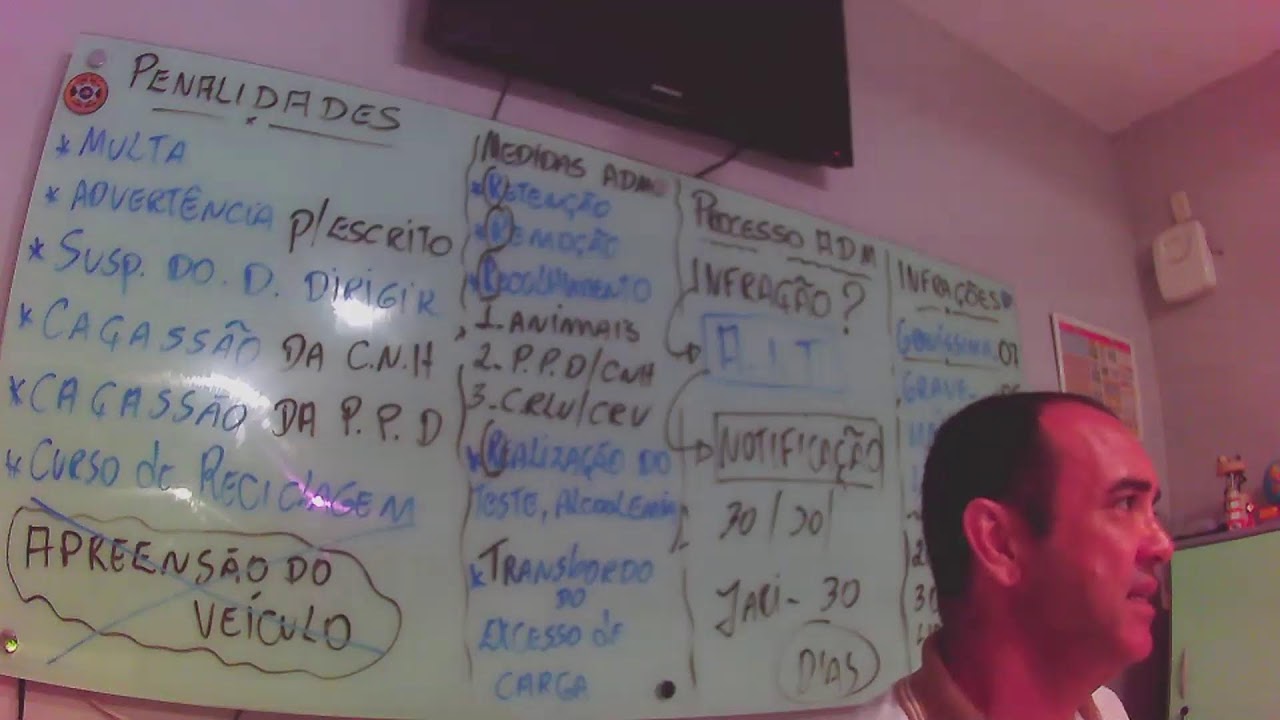 PENALIDADES
* MULTA
* ADVERTÊNCIA P/ESCRITO
* SUSP. DO. D. DIRIGIR
* CAÇASSÃO DA C.N.H
* CAÇASSÃO DA P.P.D
* CURSO de RECICLAGEM
APREENSÃO DO
VEÍCULO
MEDIDAS ADM
* RETENÇÃO
* REMOÇÃO
* RECOLHIMENTO
1. ANIMAIS
2. P.P.D/CNH
3. CRLV/CRV
* REALIZAÇÃO DO
TESTE, ALCOOLEMIA
* TRANSbORDO
DO
EXCESSO de
CARGA
PROCESSO ADM
INFRAÇÃO?
A.I.T
NOTIFICAÇÃO
30/30
JARI- 30
DIAS
INFRAÇÕES
GRAVÍSSIMA 07
GRAVE-